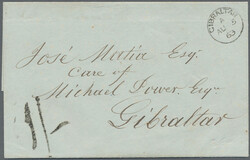 GIBRALTAR
A
AU 9
63
José Matia Esqr.
care of
Michael Power Esqr.
Gibraltar
1/-